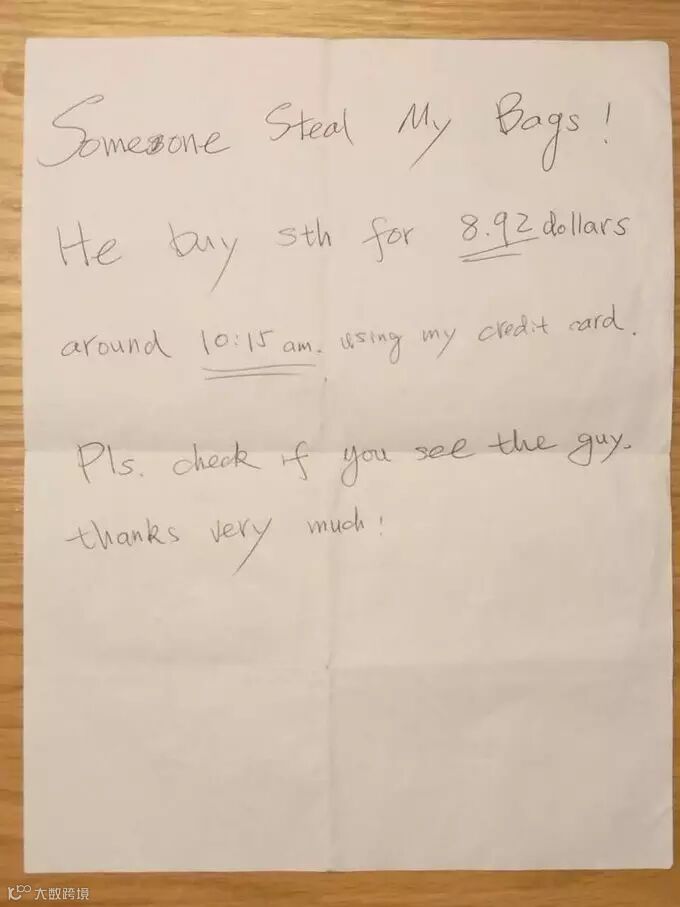 Someone Steal My Bags!
He buy sth for 8.92 dollars
around 10:15 am. using my credit card.
Pls. check if you see the guy.
thanks very much!
大数跨境